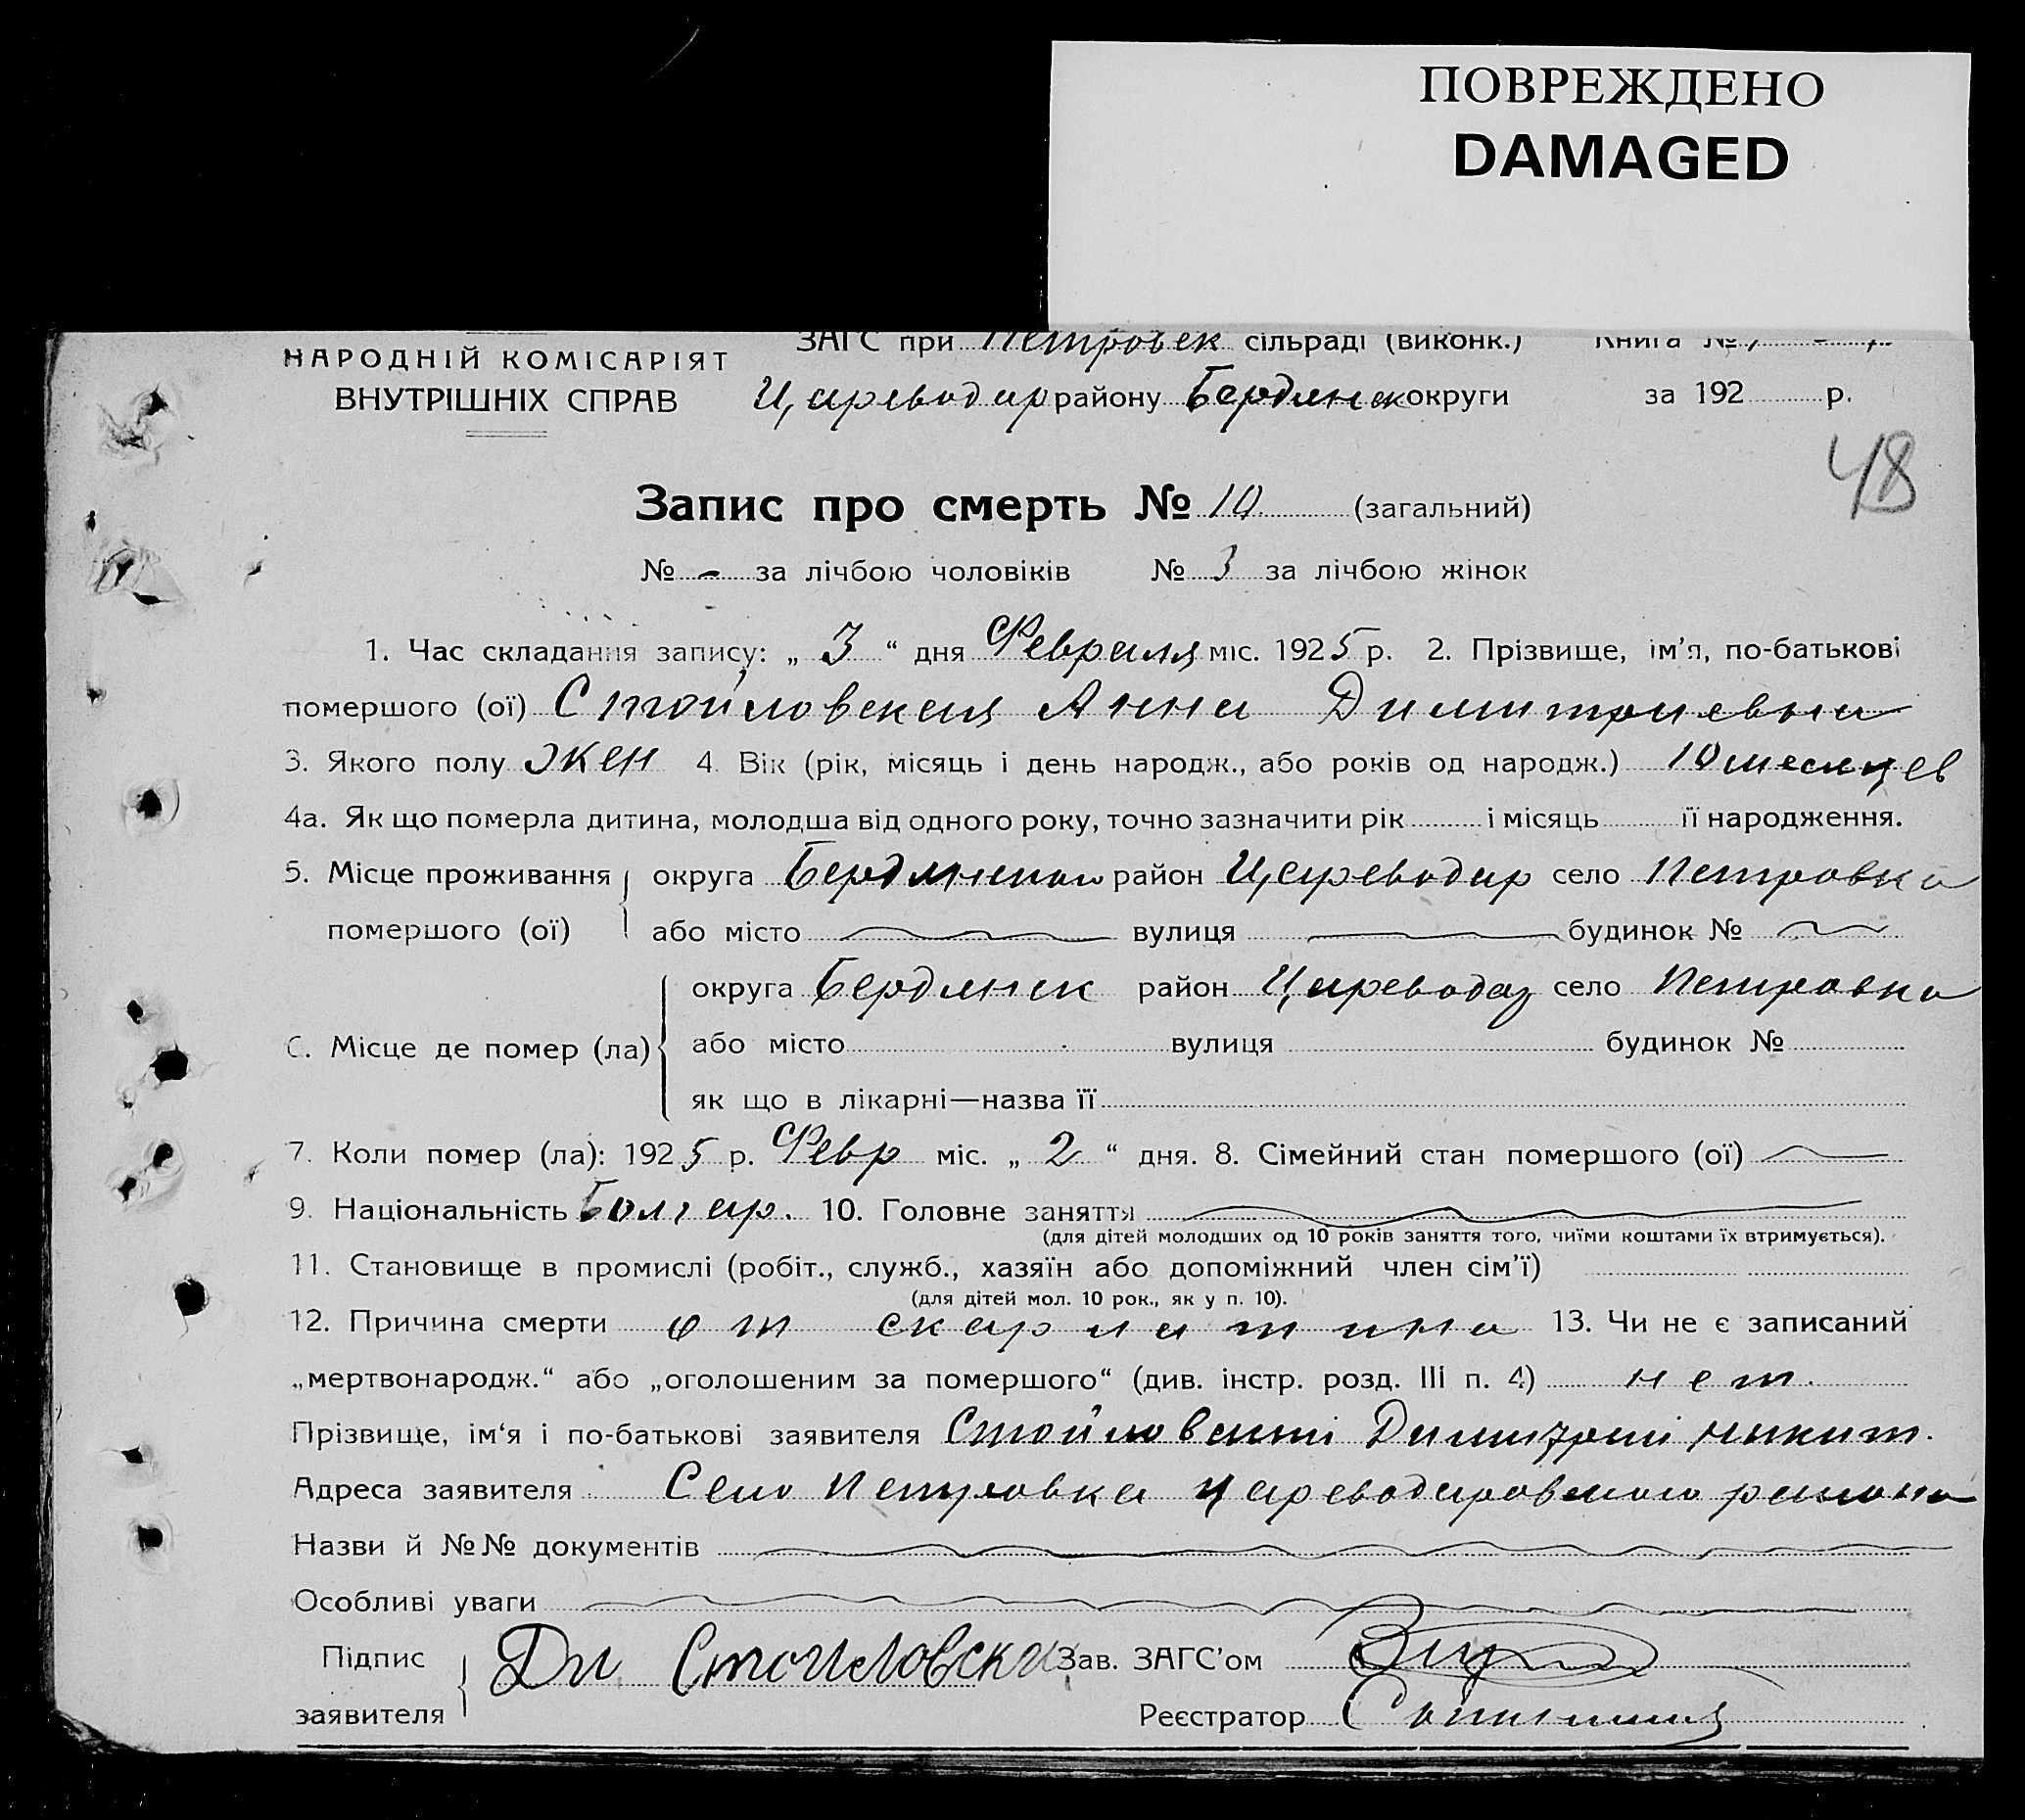 ПОВРЕЖДЕНО
DAMAGED
НАРОДНІЙ КОМІСАРІЯТ
ВНУТРІШНІХ СПРАВ
ЗАГС при Петровск сільраді (виконк.) Книга №
Цареводар району Бердянск округи за 192 р.
48
Запис про смерть № 10 (загальний)
№ - за лічбою чоловіків № 3 за лічбою жінок
1. Час складання запису: „ 3 “ дня Февраля міс. 1925 р. 2. Прізвище, ім'я, по-батькові
помершого (ої) Стойловская Анна Димитриевна
3. Якого полу жен 4. Вік (рік, місяць і день народж., або років од народж.) 10 месяцев
4а. Як що померла дитина, молодша від одного року, точно зазначити рік і місяць її народження.
5. Місце проживання округа Бердянской район Цареводар село Петровка
помершого (ої) або місто вулиця будинок №
округа Бердянск район Цареводар село Петровка
6. Місце де помер (ла) або місто вулиця будинок №
як що в лікарні—назва її
7. Коли помер (ла): 1925 р. Февр міс. „ 2 “ дня. 8. Сімейний стан помершого (ої)
9. Національність Болгар. 10. Головне заняття
(для дітей молодших од 10 років заняття того, чиїми коштами їх втримується).
11. Становище в промислі (робіт., служб., хазяїн або допоміжний член сім'ї)
(для дітей мол. 10 рок., як у п. 10).
12. Причина смерти от скарлатина 13. Чи не є записаний
„мертвонародж.“ або „оголошеним за помершого“ (див. інстр. розд. III п. 4) нет.
Прізвище, ім'я і по-батькові заявителя Стойловский Димитрий Никит.
Адреса заявителя Село Петровка Цареводаровского района
Назви й №№ документів
Особливі уваги
Підпис
заявителя Ди Стоиловски Зав. ЗАГС'ом
Реєстратор